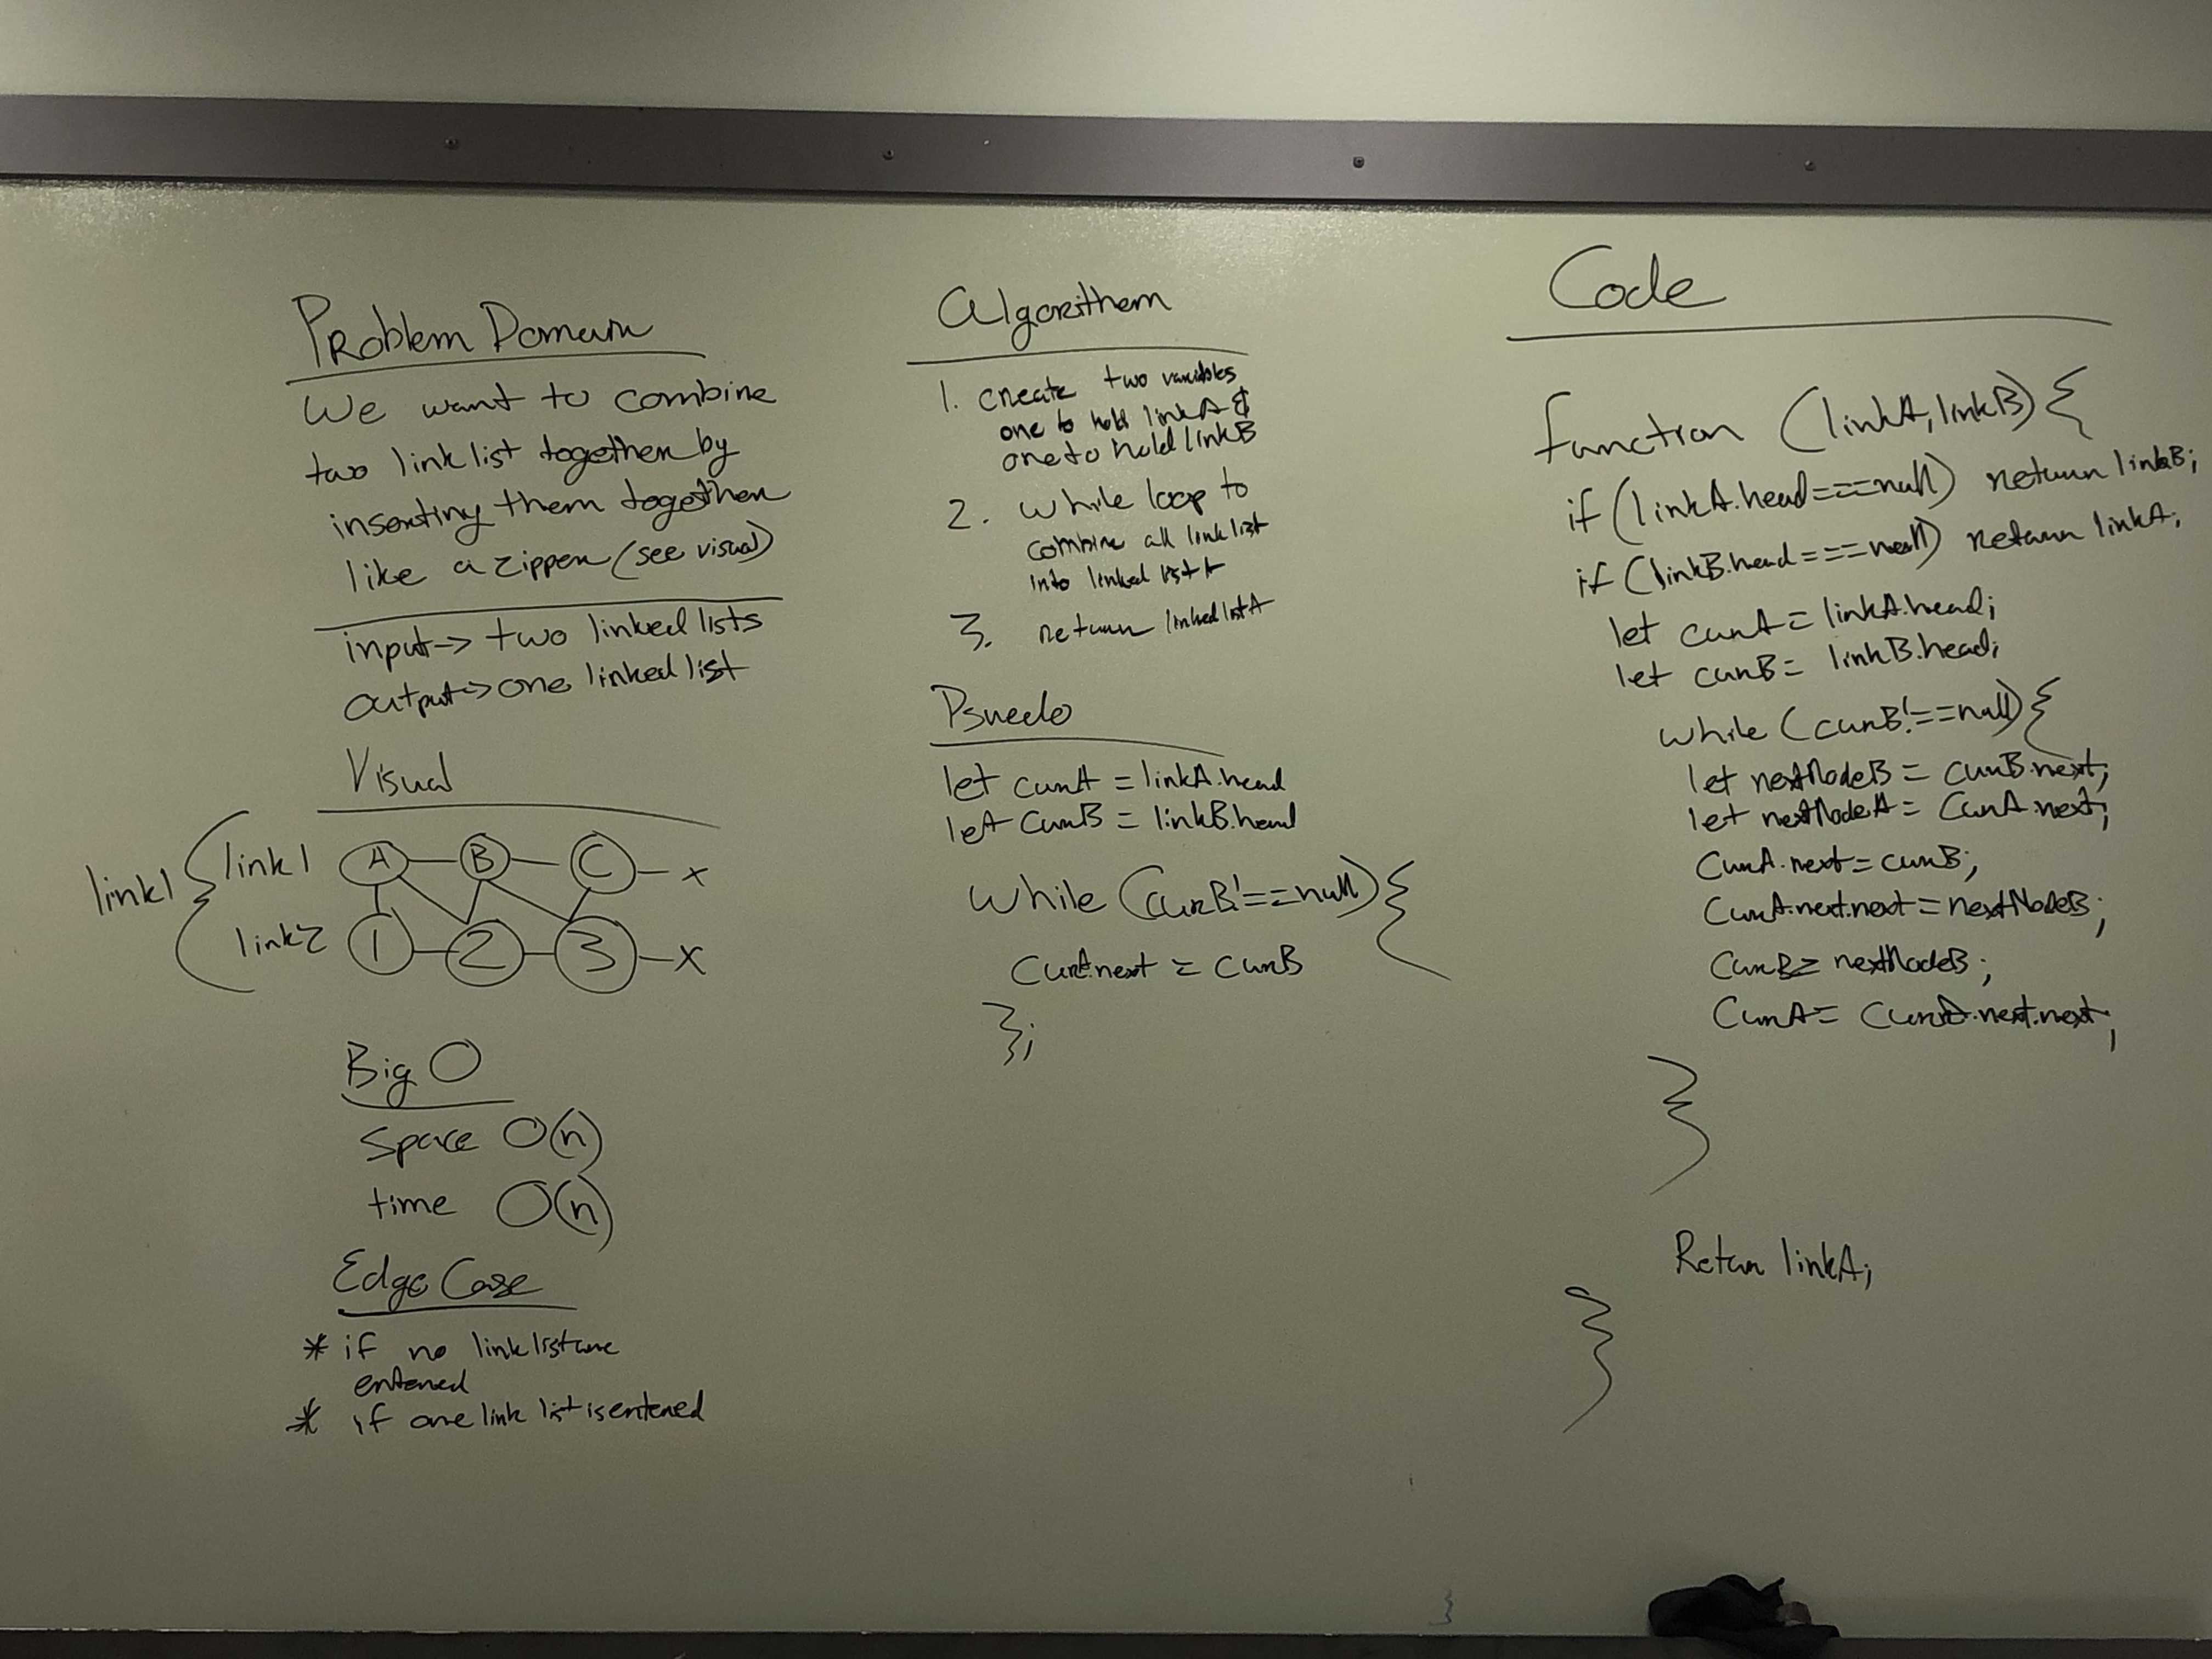 Problem Domain
We want to combine
two link list together by
inserting them together
like a zipper (see visual)
input -> two linked lists
output -> one linked list
Visual
link1 { link1 A B C x
link2 1 2 3 x
Big O
Space O(n)
time O(n)
Edge Case
* if no link list are
entered
* if one link list is entered
Algorithem
1. create two variables
one to hold linkA &
one to hold linkB
2. while loop to
combine all link list
into linked list A
3. return linked list A
Psuedo
let curA = linkA.head
let curB = linkB.head
while (curB !== null) {
curA.next = curB
};
Code
function (linkA, linkB) {
if (linkA.head === null) return linkB;
if (linkB.head === null) return linkA;
let curA = linkA.head;
let curB = linkB.head;
while (curB !== null) {
let nextNodeB = curB.next;
let nextNodeA = curA.next;
curA.next = curB;
curA.next.next = nextNodeB;
curB = nextNodeB;
curA = curA.next.next;
}
Return linkA;
}